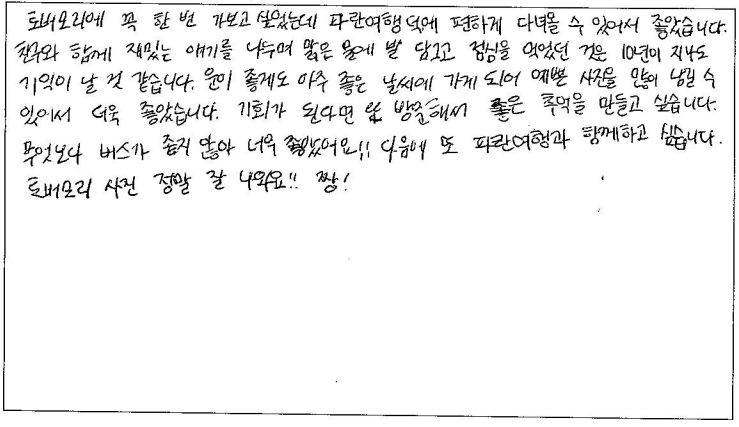 토버모리에 꼭 한 번 가보고 싶었는데 파란여행 덕에 편하게 다녀올 수 있어서 좋았습니다.
친구와 함께 재밌는 얘기를 나누며 맑은 물에 발 담그고 점심을 먹었던 것은 10년이 지나도
기억이 날 것 같습니다. 운이 좋게도 아주 좋은 날씨에 가게 되어 예쁜 사진을 많이 남길 수
있어서 더욱 좋았습니다. 기회가 된다면 또 방문해서 좋은 추억을 만들고 싶습니다.
무엇보다 버스가 좁지 않아 너무 좋았어요!! 다음에 또 파란여행과 함께하고 싶습니다.
토버모리 사진 정말 잘 나와요!! 짱!